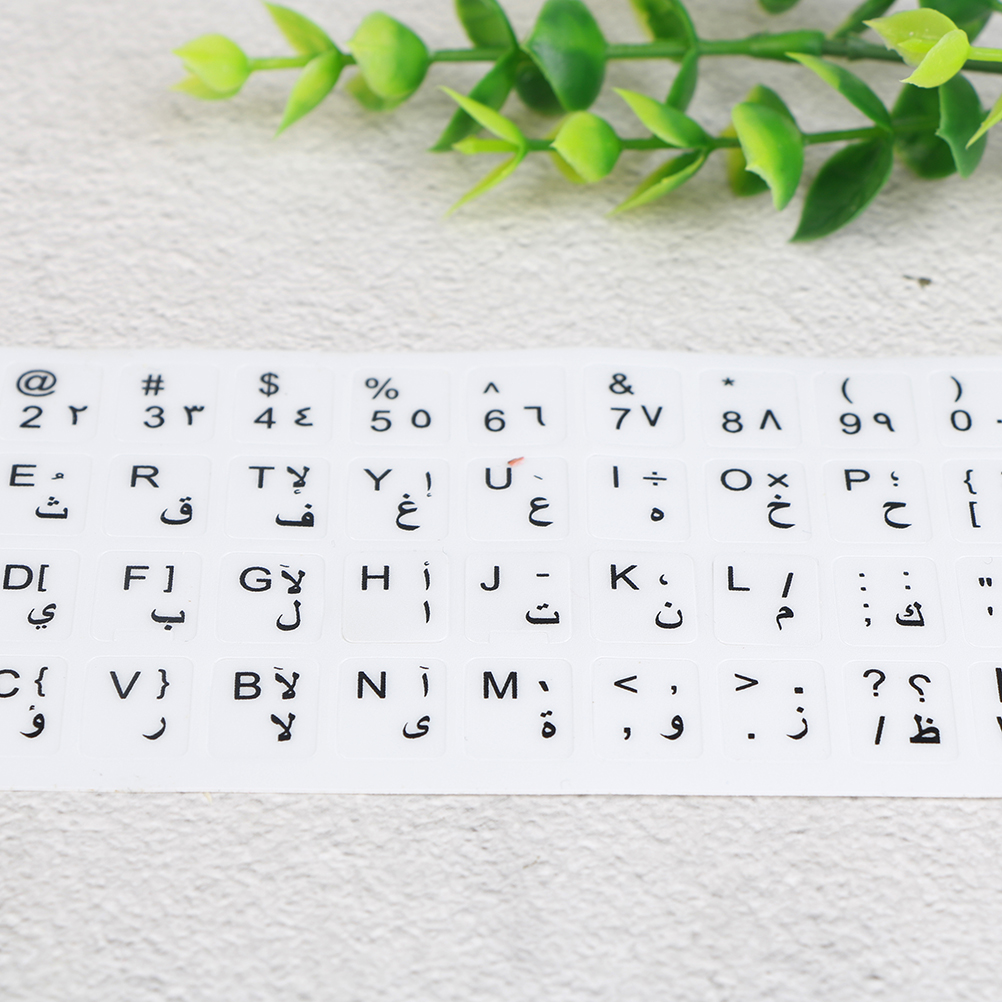 @ # $ % ^ & * ( )
2 ٢ 3 ٣ 4 ٤ 5 ٥ 6 ٦ 7 ٧ 8 ٨ 9 ٩ 0
E ُ R T لإ Y إ U ` I ÷ O × P ؛ {
ث ق ف غ ع ه خ ح [
D [ F ] G لأ H أ J - K ، L / : : "
ي ب ل ا ت ن م ; ك '
C { V } B لآ N آ M ' < , > . ? ؟
ؤ ر لا ى ة , و . ز / ظ